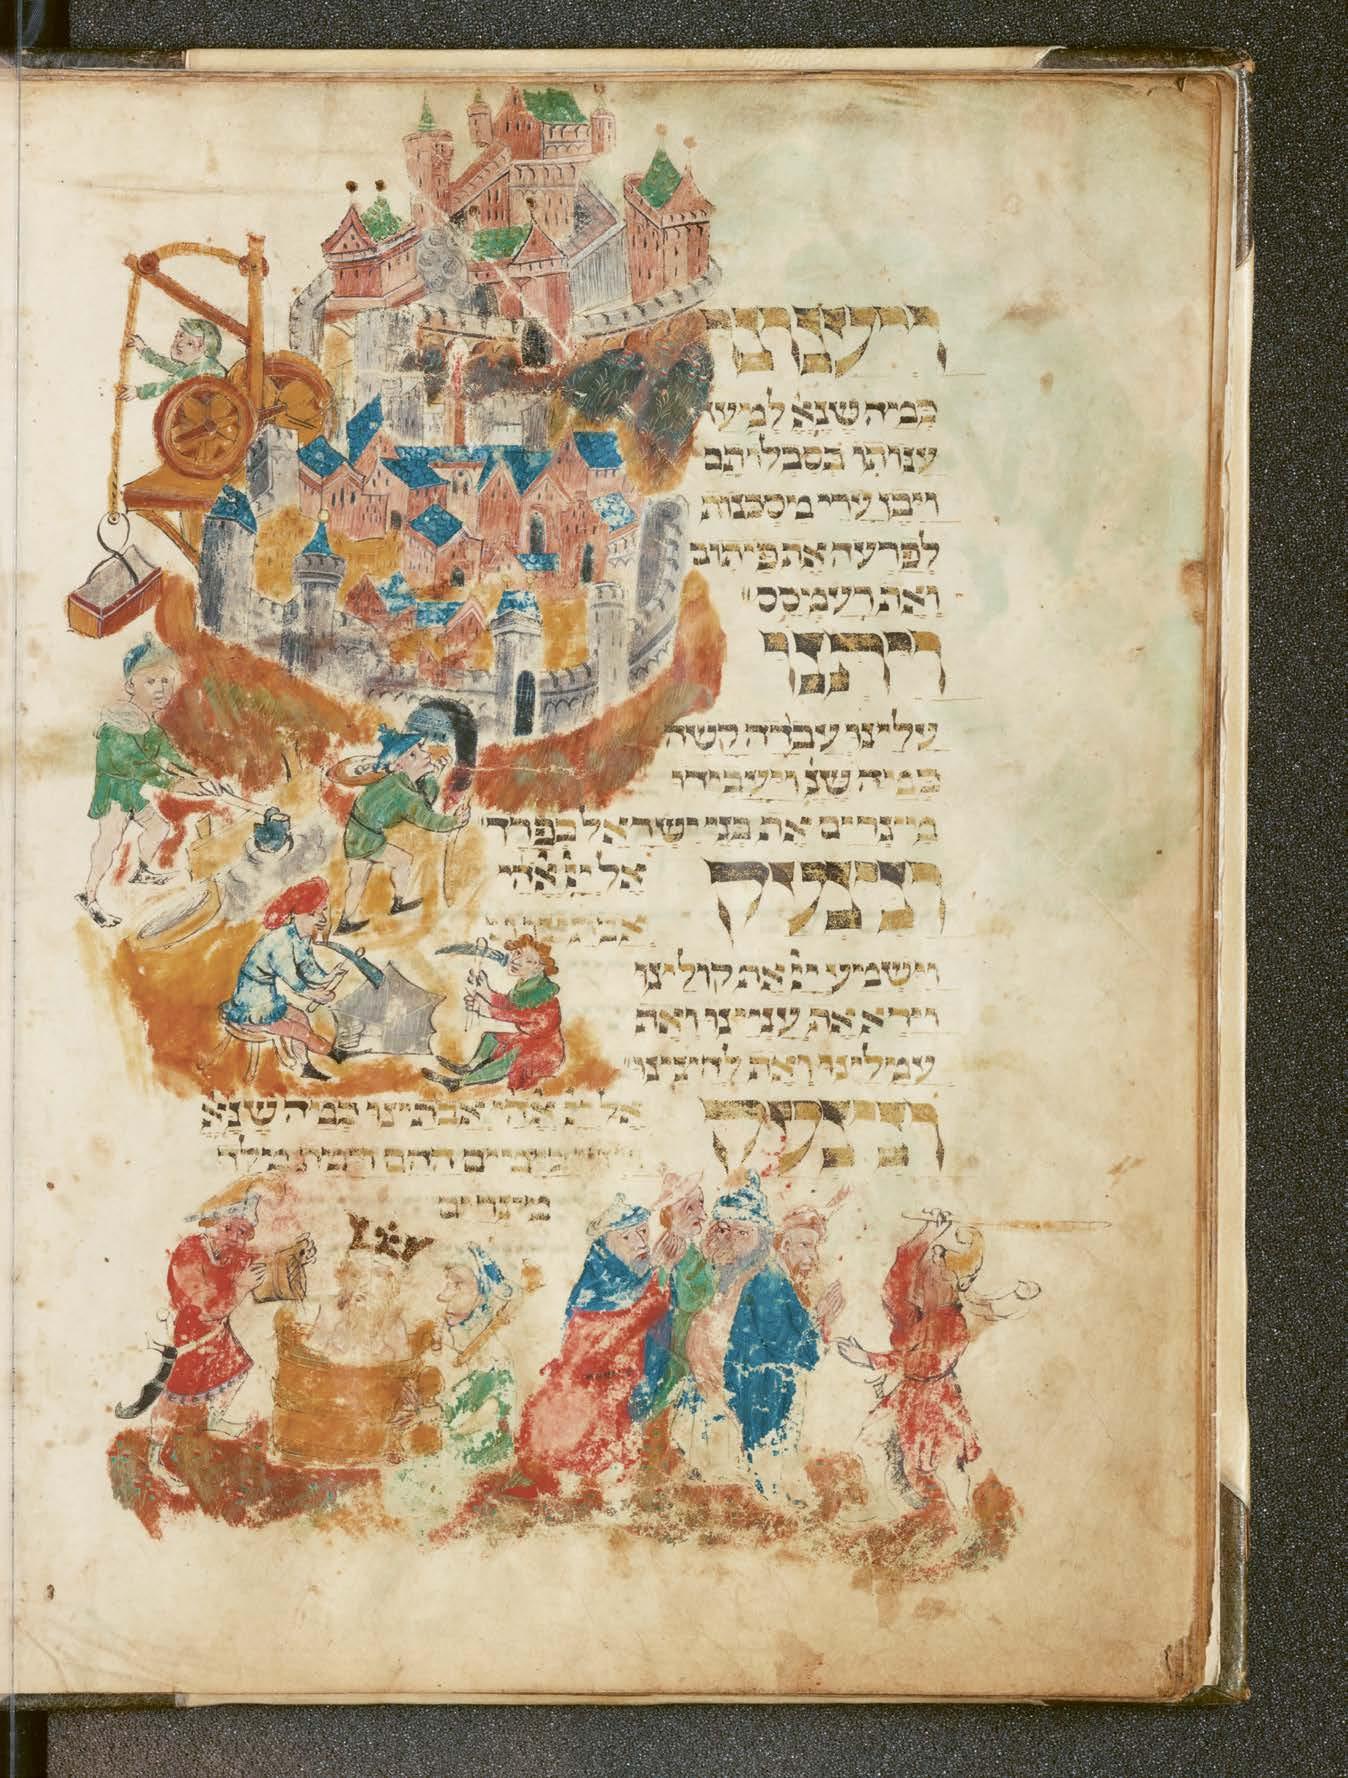 ויענונו
כמה שנא למען
ענותו בסבלותם
ויבן ערי מסכנות
לפרעה את פיתום
ואת רעמסס
ויתנו
עלינו עבדה קשה
כמה שנ ויעבידו
מצרים את בני ישראל בפרך
ונצעק
אל יי אלהי
וישמע יי את קולינו
וירא את ענינו ואת
עמלינו ואת לחצינו
ונצעק
אל יי אלהי אבתינו כמה שנא
ההם וימת מלך
מצרים